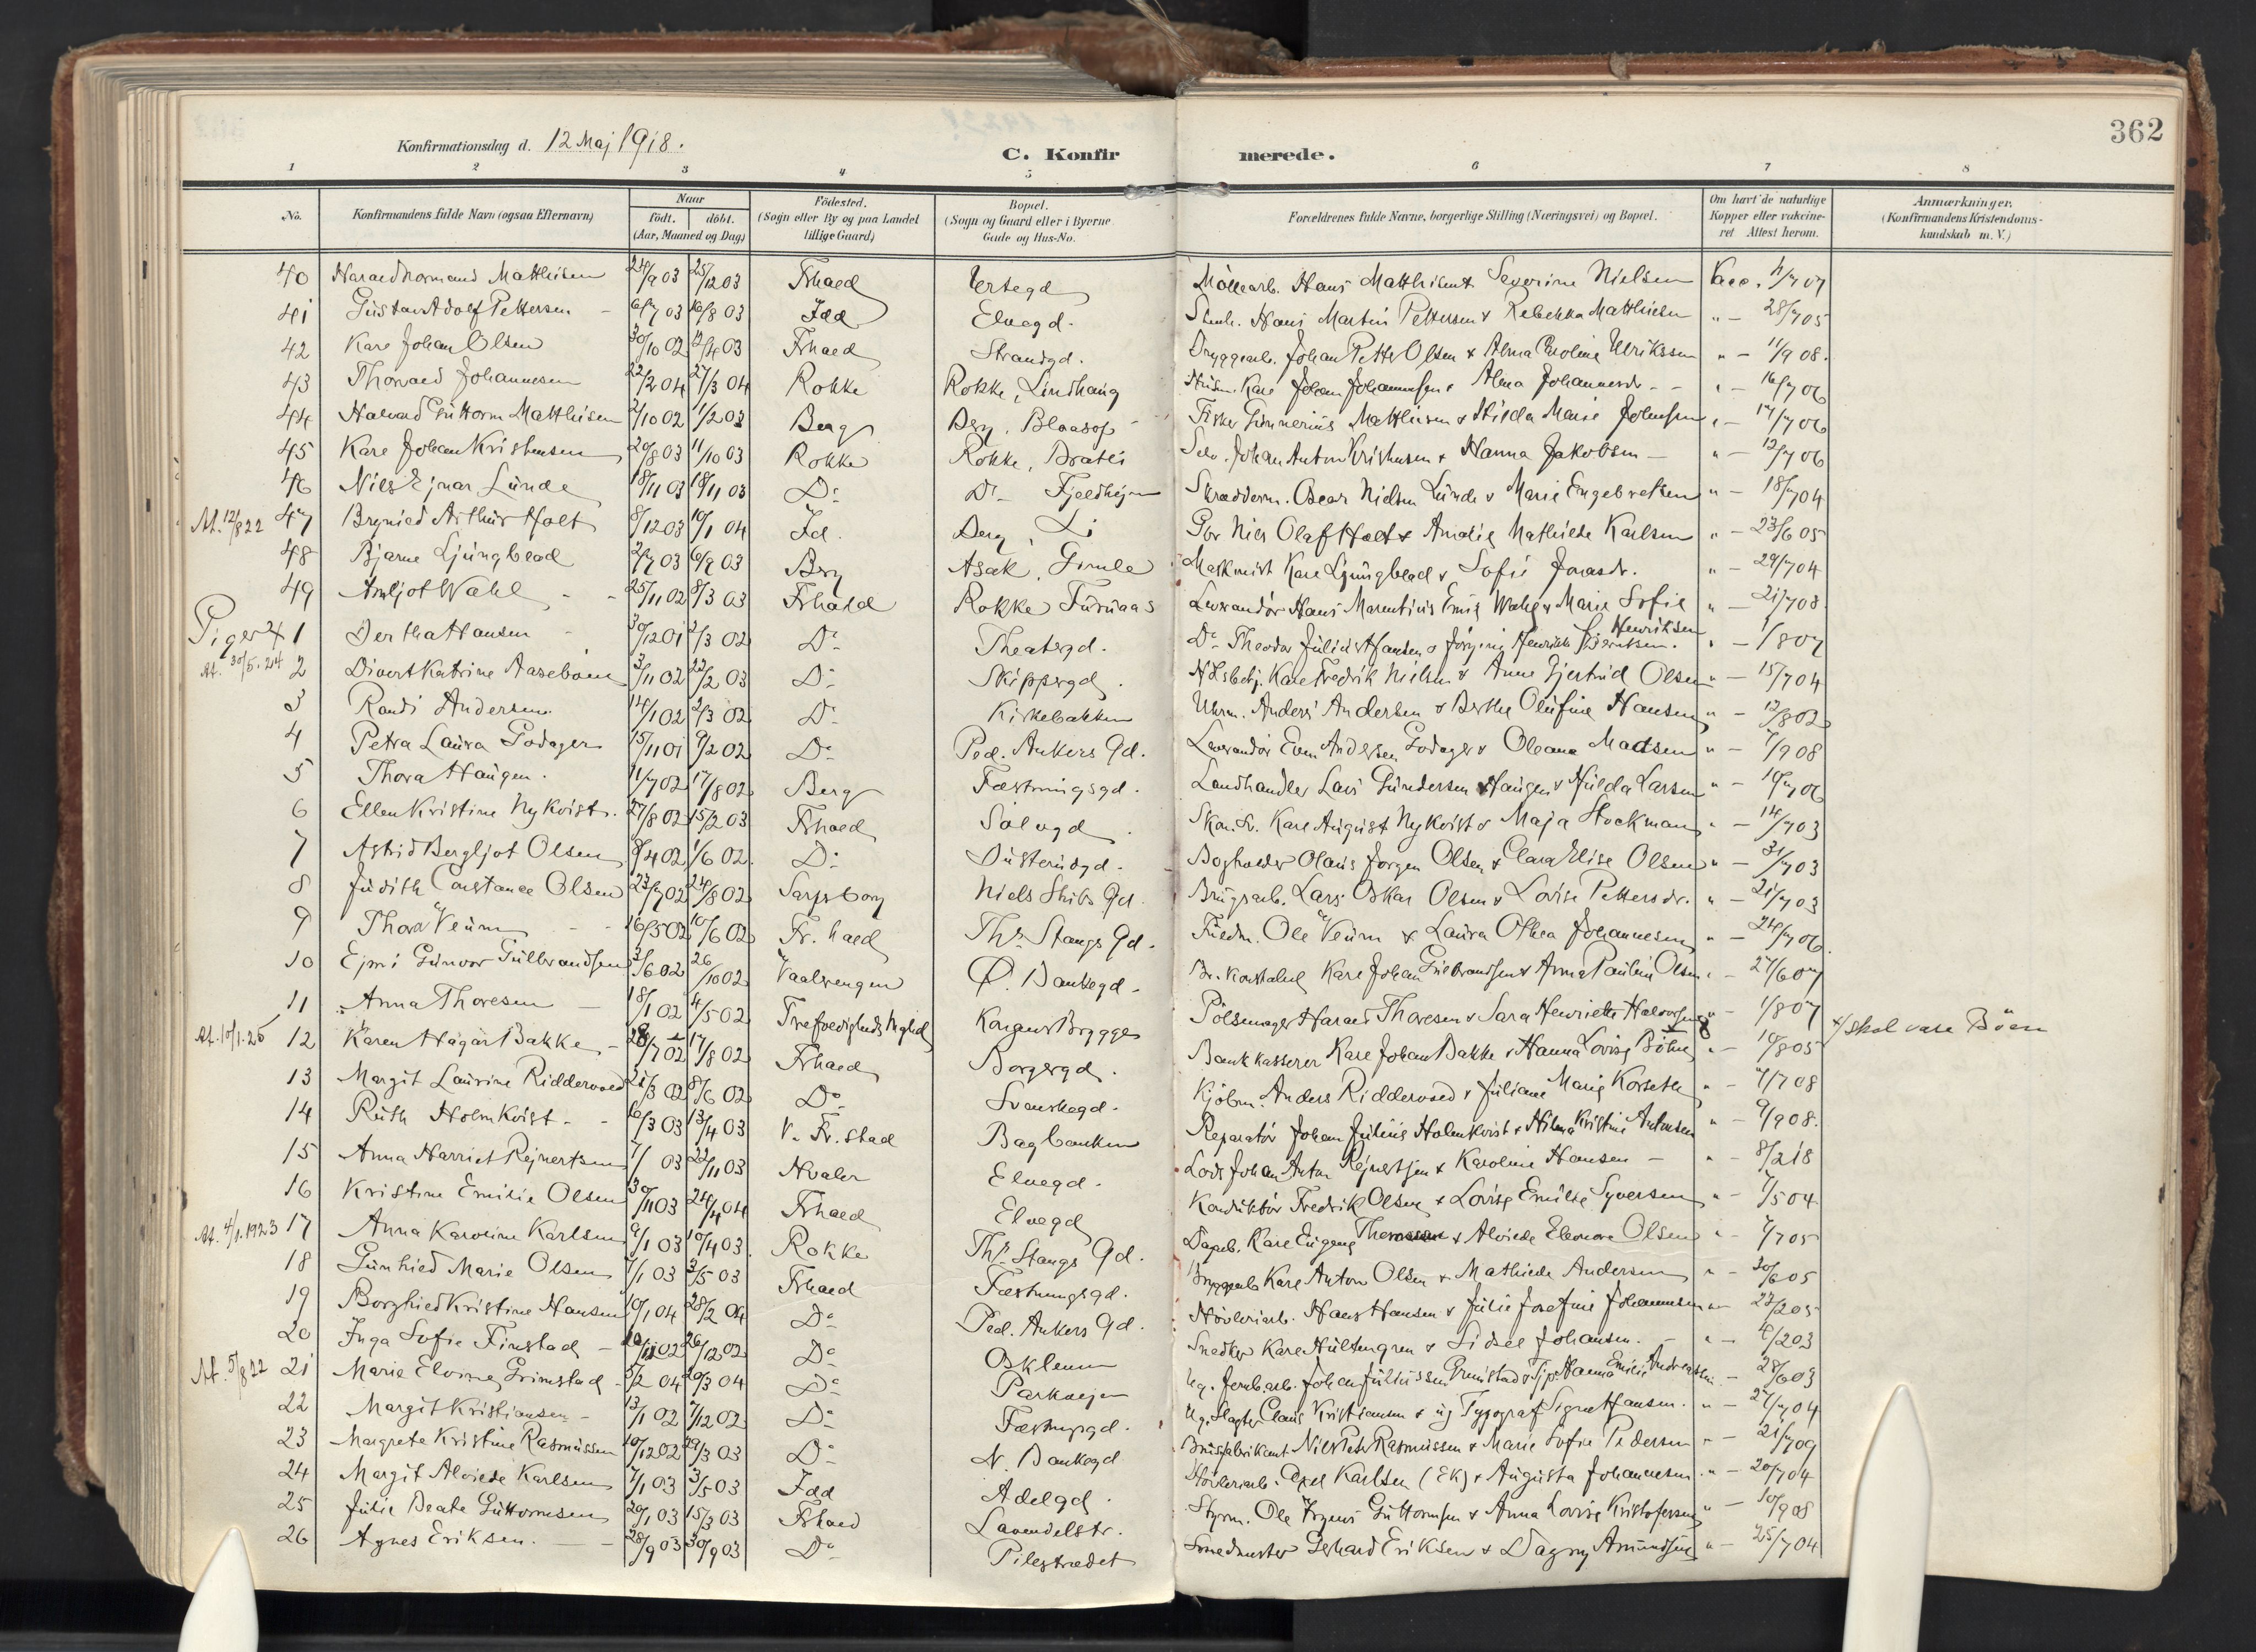 362
Konfirmationsdag d. 12 Maj 1918.
C. Konfirmerede.
1 2 3 4 5 6 7 8
No. Konfirmandens fulde Navn (ogsaa Efternavn) Naar født. døbt. (Aar, Maaned og Dag) Fødested. (Sogn eller By og paa Landet tillige Gaard) Bopæl. (Sogn og Gaard eller i Byerne Gade og Hus-No. Forældrenes fulde Navne, borgerlige Stilling (Næringsvei) og Bopæl. Om havt de naturlige Kopper eller vaccineret Attest herom. Anmærkninger. (Konfirmandens Kristendomskundskab m. V.)
40 Harald Normand Matthisen 24/9 03 25/12 03 Frhald Møllearb. Hans Matthisen & Severine Nielsen Vacc.
41 Gustav Adolf Pettersen 16/8 03 Idd Elvegd. Hans Martin Pettersen & Rebekka Matthisen " - 28/7 05
42 Karl Johan Olsen 30/10 02 Frhald Strandgd. Bryggearb. Johan Petter Olsen & Alma Caroline Ulrikssen " - 11/9 08.
43 Thorvald Johannesen 22/2 04 27/3 04 Rokke Rokke, Lindhaug Karl Johan Johannesen & Alma Johannesdr. - 16/7 06
44 Halvard Guttorm Matthisen 2/10 02 1/2 03 Berg Berg, Fisker Gunnerius Matthisen & Hilda Marie Johansen - 17/7 06
45 Karl Johan Kristensen 20/8 03 11/10 03 Rokke Rokke, Braten Johan Anton Kristensen & Hanna Jakobsen - " - 12/7 06
46 Niels Ejnar Lunde 18/11 03 Do Do Fjeldhejm Skrædderm. Oscar Nielsen Lunde & Marie Engebretsen " - 18/7 04
At. 12/8 22 47 Brynild Arthur Holt 8/12 03 10/1 04 Id. Berg, Li Niels Olaf Holt & Amalie Mathilde Karlsen " - 23/6 05
48 Bjarne Ljungblad 2/7 03 6/9 03 Berg Asak, Gimle Maskinist Karl Ljungblad & Sofie Jonasdr. " - 29/7 04
49 Arnljot Wahl 25/11 02 8/3 03 Frhald Rokke Furuaas Leverandør Hans Marentinius Emil Wahl & Marie Sofie Henriksen " - 21/7 08
Piger 1 Bertha Hansen 30/12 01 2/3 02 Do Theatergd. Do Theodor Julius Hansen & - 1/8 07
At. 30/5.24 2 Divert Katrine 3/11 02 22/2 03 Do Skippergd. Karl Fredrik Nielsen & Anne Gjertrud Olsen " - 15/7 04
3 Randi Andersen 14/1 02 2/3 02 Do Kirkebakken Uhrm. Anders Andersen & Berthe Olufine Hansen " - 12/8 02
4 Petra Laura Godager 15/11 01 9/2 02 Do Ped. Ankers Gd. Leverandør Even Andersen Godager & Oleana Madsen " - 1/9 08
5 Thora Haugen. 11/7 02 17/8 02 Berg Fæstningsgd. Landhandler Lars Gundersen Haugen & Hulda Larsen "
6 Ellen Kristine Nykvist. 27/8 02 15/2 03 Frhald Karl August Nykvist & Maja Stockman " - 14/7 03
7 Astrid Bergljot Olsen 8/4 02 1/6 02. Do Bogholder Olaus Jørgen Olsen & Clara Elise Olsen " - 31/7 03
8 Judith Constance Olsen 23/7 02 24/8 02 Sarpsborg Niels Stibs Gd. Brugsarb. Lars Oskar Olsen & Lovise Pettersdr. " - 21/7 03
9 Thora Veum 16/5 02 10/6 02 Fr.hald Ths Stangs Gd. Ole Veum & Laura Othea Johannesen " - 24/7 06.
10 Gunvor Gulbrandsen 3/6 02 26/10 02 Vaalerengen Ø. Bankegd. Br. konstabel Karl Johan Gulbrandsen & Anna Pauline Olsen - 27/6 07
11 Anna Thoresen 18/1 02 4/5 02 Trefoldigheds Mghd Kongens Brygge Pølsemager Harald Thoresen & Sara Henriette Halvorsen " - 1/8 07
At. 10/1.25 12 Karen Hagar Bakke 17/8 02 Frhald Borgergd. Bankkasserer Karl Johan Bakke & Hanna Lovise Bøhn " - 10/8 05 x/ skal være Böen
13 Margit Laurine Riddervold 21/3 02 8/6 02 Do Svenskegd. Kjøbm. Anders Riddervold & Juliane Marie Korseth " - 1/7 08
14 Ruth Holmkvist 16/3 03 13/4 03 V. Fr.stad Bagbanken Reparatør Johan Julius Holmkvist & Hilma Kristine Antonsen " - 9/9 08.
15 Anna Harriet Rejnertsen 7/ 03 22/11 03 Hvaler Elvegd. Lods Johan Anton Rejnertsen & Karoline Hansen - " - 8/2 18
16 Kristine Emilie Olsen 30/11 03 24/4 04 Frhald Elvegd Konduktør Fredrik Olsen & Lovise Emilie Syversen " - 7/5 04
At. 4/1.1923 17 Anna Karoline Karlsen 9/1 03 10/4 03. Rokke Ths Stangs Gd. Karl Eugene & Alvilde Eleonore Olsen " - 7/7 05
18 Gunhild Marie Olsen 7/1 03 3/5 03 Frhald Fæstningsgd. Bryggearb Karl Anton Olsen & Mathilde Andersen " - 30/6 05
19 Borghild Kristine Hansen 10/1 04 28/2 04 Do Ped. Ankers Gd. Høvleriarb. Hans Hansen & Julie Josefine Johannesen - 27/2 05
20 Inga Sofie Finstad 26/12 02 Do Oskleven Snedker Karl Hultengren & Sidsel Johansen. - " - 4/2 03
At. 5/8 22 21 Marie Elvine Grimstad 5/2 04 20/3 04 Do Parkvejen Ug. Jernb.arb. Johan Juliussen Grimstad & Hanna Emilie Andreassen - 28/6 03
22 Margit Kristiansen 13/1 02 7/12 02 Do Fæstngsgd. Ug. Slagter Claus Kristiansen & ug Typograf Signe Hansen. " - 27/7 04
23 Margrete Kristine Rasmussen 10/12 02 29/3 03 Do N. Bankegd Brusfabrikant Niels Peter Rasmussen & Marie Sofie Pedersen " - 21/7 09
24 Margit Alvilde Karlsen 7/1 03 3/5 03 Idd Adelgd. Høvleriarb. Axel Karlsen (Ek) & Augusta Johannesen " - 20/7 04
25 Julie Beate Guttormsen 20/1 03 15/3 03 Frhald Lavendelstr. Styrm. Ole Guttormsen & Anna Lovise Kristofersen " - 10/9 08
26 Agnes Eriksen. 28/9 03 30/9 03 Do Pilestrædet Smedmester Gerhard Eriksen & Dagny Amundsen " - 25/7 04